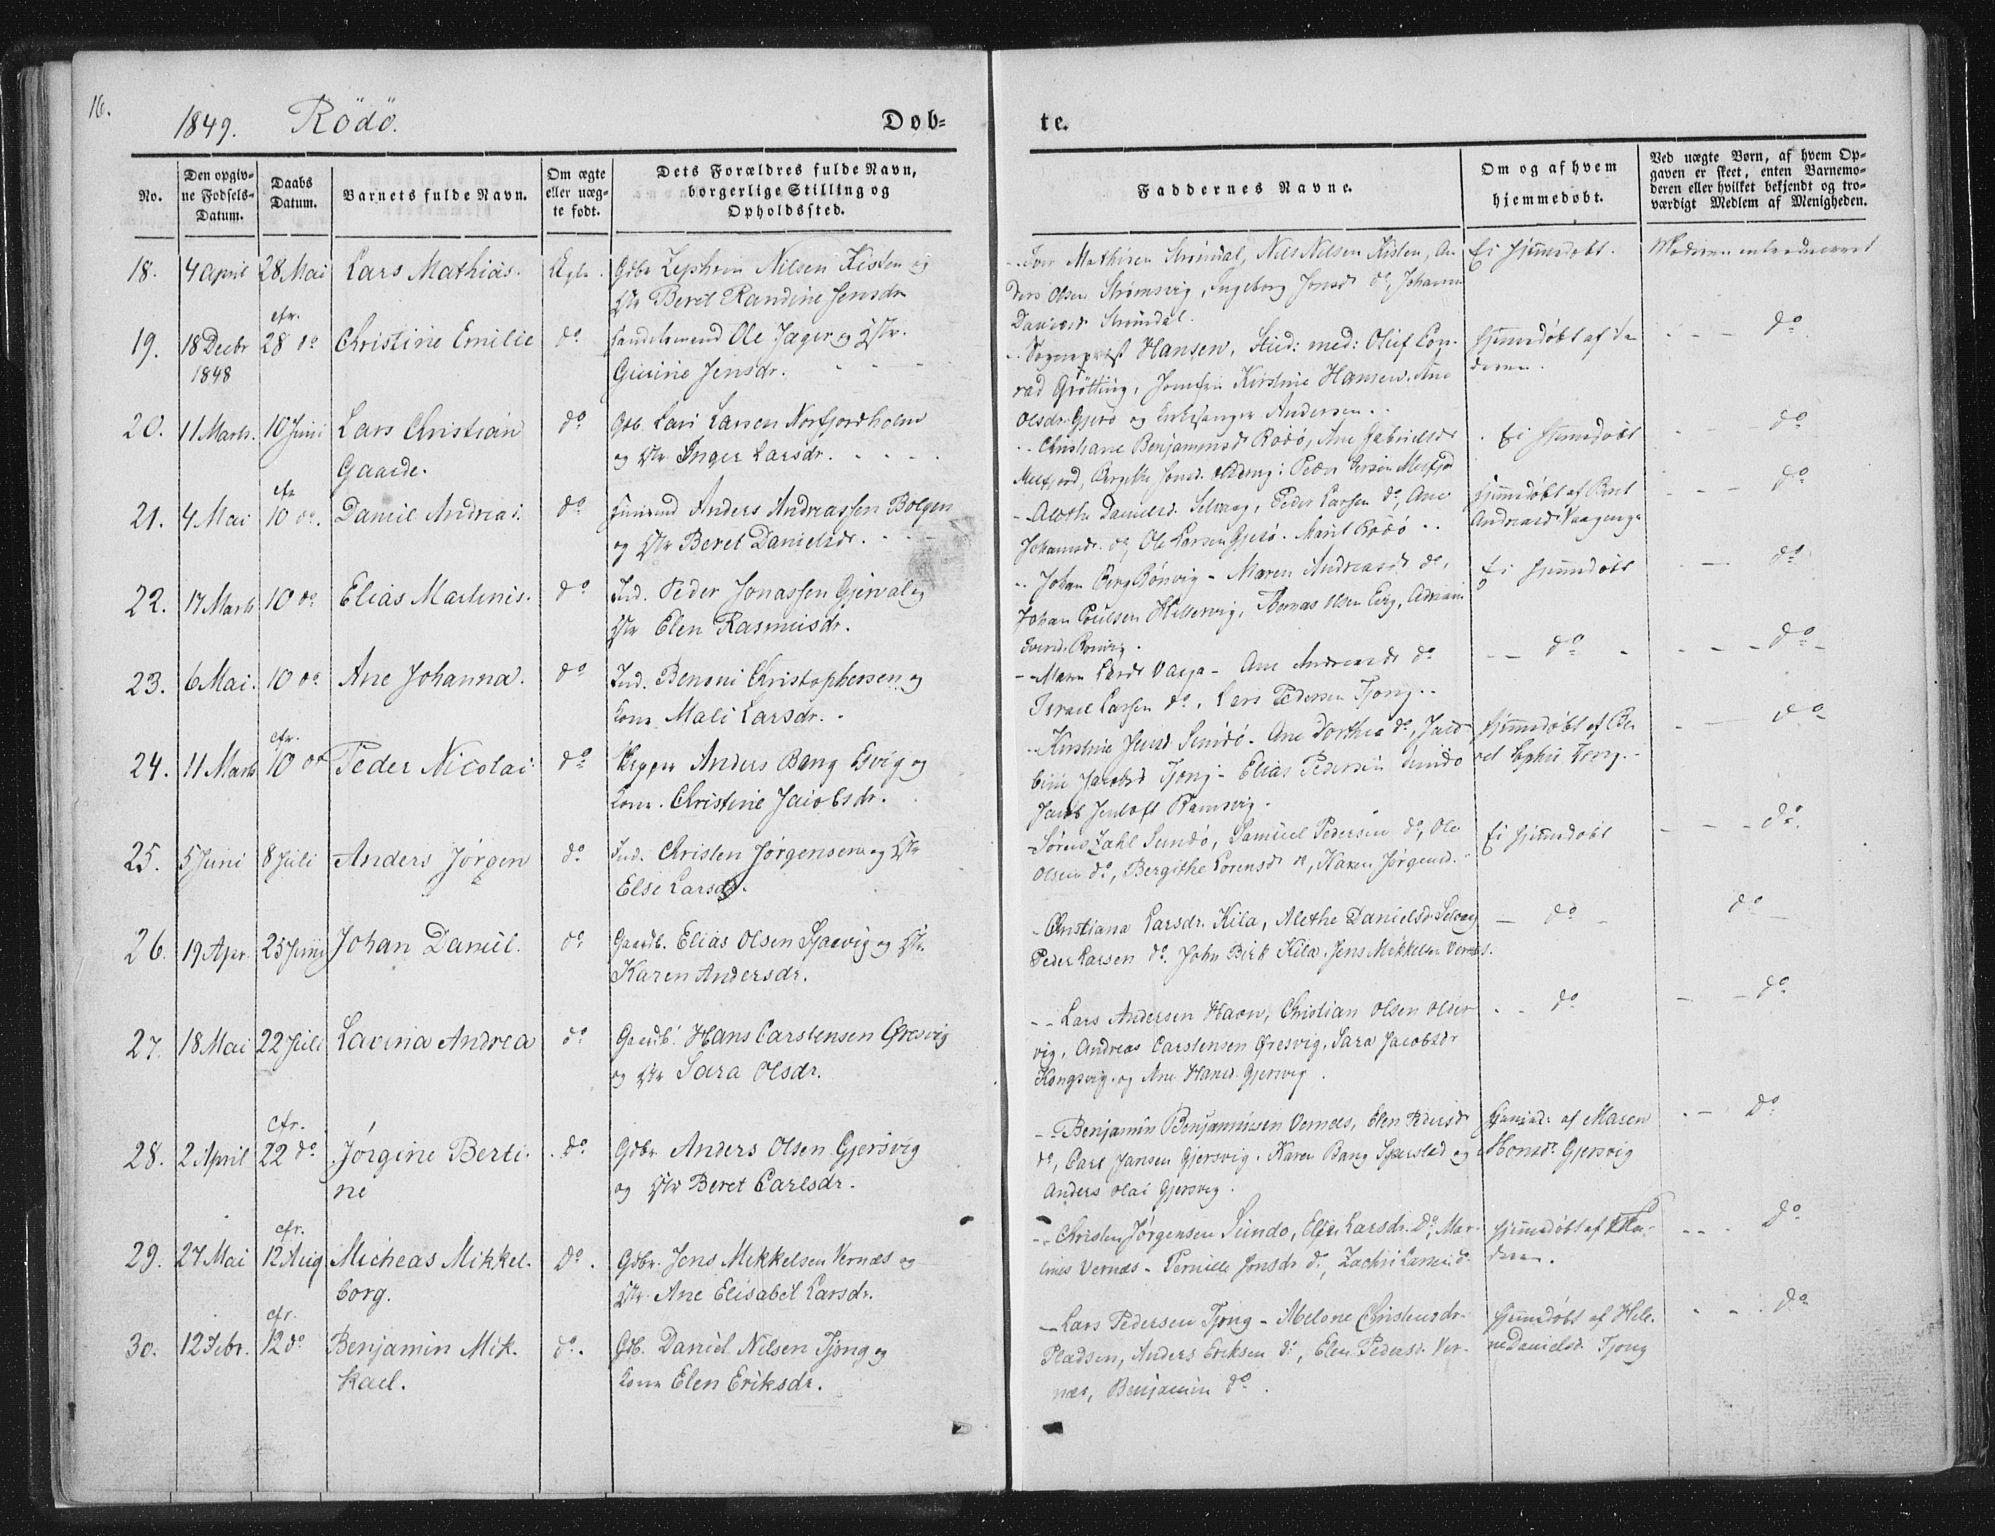 16.
1849. Rödö. Dob- te.
No. Den opgiv- ne Fødsels- Datum. Daabs Datum. Barnets fulde Navn. Om ægte eller uæg- te født. Dets Forældres fulde Navn, borgerlige Stilling og Opholdssted. Faddernes Navne. Om og af hvem hjemmedøbt. Ved uægte Børn, af hvem Op- gaven er skeet, enten Barnemo- deren eller hvilket bekjendt og tro- værdigt Medlem af Menigheden.
18. 4 April 28 Mai Lars Mathias. Ægte. Gdbr Zephren Nilsen Kisten og
Hr Beret Randine Jensdr
Iver Mathisen Strømdal, Nils Nilsen Kisten, An-
ders Olsen Strømsvig, Ingeborg Jonsd do, Johanna
Danielsd Strømdal.
Ei hjemmedøbt. Moderen introduceret
19. 18 Decbr 1848 cfr. 28 do Christine Emilie do Handelsmand Ole Jæger og Hstr.
Gurine Jensdr.
Sognepræst Hansen, Stud: med: Oluf Con-
rad Grötting, Jomfru Kirstine Hansen, Ane
Olsdr. Gjerö og Kirkesanger Andersen.
hjemmedøbt af Fa-
deren. do
20. 11 Marts. 10 Juni Lars Christian
Gaarde. do Gdb. Lars Larsen Norfjordholm
og Hstr Inger Larsdr.
Christiane Benjaminsd Rödö, Ane Gabrielsd
Melfjord,
Ei hjemmedøbt do
21. 4 Mai cfr 10 do. Daniel Andreas. do Huusmd Anders Andreassen Bolgen
og Hstr Beret Danielsdr.
Alethe Danielsd. Selvaag, Peder Larsen do, Ane
Johansdr. do, Ole Larsen Gjerö. Marit Rödö
hjemmedøbt af Beret
Andreasd Vaageng do
22. 17 Marts 10 do Elias Martinus. do Ind. Peder Jonassen Gjerval og
Hstr Elen Rasmusdr.
Johan Berg Bönvig - Maren Andreasd do,
Johan Poulsen Hellervig, Thomas Olsen
Ei hjemmedøbt do
23. 6 Mai. 10 do Ane Johanna. do Ind. Benoni Christophersen og
Kone Mali Larsdr.
Maren Larsdr Vaga - Ane Andreasd do
Israel Larsen do, Lars Pedersen Tjong.
do do
24. 11 Marts cfr. 10 do Peder Nicolai do Skipper Anders Bang Esvig og
Kone. Christine Jacobsdr.
Kirstine Jensd Sundö - Ane Dorthea do,
Jacobsd Tjong - Elias Pedersen Sundö
Jacob Jentoft Ramsvig.
hjemmedøbt af Be-
ret Tjong. do
25. 5 Juni 8 Juli Anders Jørgen do. Ind. Christen Jørgensen og Hstr
Else Larsdr.
Sörens Zahl Sundö, Samuel Pedersen do, Ole
Olsen do, Bergithe Lorensd do, Karen Jørgensd.
Ei hjemmedøbt do.
26. 19 Apr. 25 Juni Johan Daniel. do Gaardb. Elias Olsen Sjaavig og Hstr.
Karen Andersdr.
Christiana Larsdr. Kila, Alethe Danielsd Selvaag
Peder Larsen do. John Birk Kila. Jens Mikkelsen Vernæs.
do do
27. 18 Mai 22 Juli Lavina Andrea do Gaardb. Hans Carstensen Øresvig
og Hstr Sara Olsdr.
Lars Andersen Havn, Christian Olsen Older-
vig, Andreas Carstensen Øresvig, Sara Jacobsdr
Kongsvig og Ane Hansd. Gjersvig.
do do
28. 2 April cfr. 22 do Jørgine Berti-
ne do Gdbr Anders Olsen Gjersvig
og Hstr Beret Carlsdr.
Benjamin Benjaminsen Vernæs, Elen Pedersd
do, Carl Jansen Gjersvig. Karen Bang Sjærstad og
Anders Olai Gjersvig.
hjemmed: af Maren
Honsdr Gjersvig do
29. 27 Mai cfr. 12 Aug Micheas Mikkel-
borg. do. Gdbr. Jens Mikkelsen Vernæs og
Hstr. Ane Elisabet Larsdr.
Christen Jørgensen Sundö, Else Larsdr. do, Mar-
tines Vernæs - Pernille Jonsdr do, Zachri Larsen do
hjemmedøbt af Fa-
deren. do
30. 12 Febr. cfr. 12 do Benjamin Mik-
kael. do. Gdb. Daniel Nilsen Tjong og
Kone Elen Eriksdr.
Lars Pedersen Tjong - Abelone Christensdr.
Pladsen, Anders Eriksen do, Elen Pedersd. Ver-
næs, Benjamin do.
hjemmedøbt af Hele-
ne Danielsd Tjong do